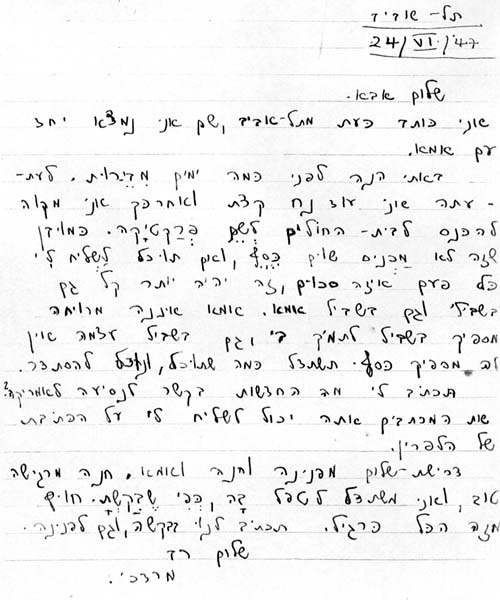 תל-אביב
24/VI/47
שלום אבא.
אני כותב כעת מתל-אביב, שם אני נמצא יחד
עם אמא.
באתי הנה לפני כמה ימים מבירות. לעת-
-עתה אני עוד נח קצת ואחרכך אני מקוה
להכנס לבית-החולים לשם פרקטיקה. כמובן
שזה לא מכניס שום כסף, ואם תוכל לשלוח לי
כל פעם איזה סכום, זה יהיה יותר קל גם
בשבילי וגם בשביל אמא. אמא איננה מרויחה
מספיק בשביל לתמך בי וגם בשביל עצמה אין
לה מספיק כסף. תשתדל כמה שתוכל, להסתדר.
תכתב לי מה החדשות בקשר לנסיעה לאמריקה?
את המכתבים אתה יכול לשלוח לי על הכתבת
של הלפרין.
דרישת-שלום מפנינה וחנה ואמא. חנה מרגישה
טוב, ואני משתדל לטפל בה, כפי שבקשת. חוץ
מזה הכל כרגיל. תכתב לנו בבקשה, וגם לפנינה.
שלום רב
מרדכי.